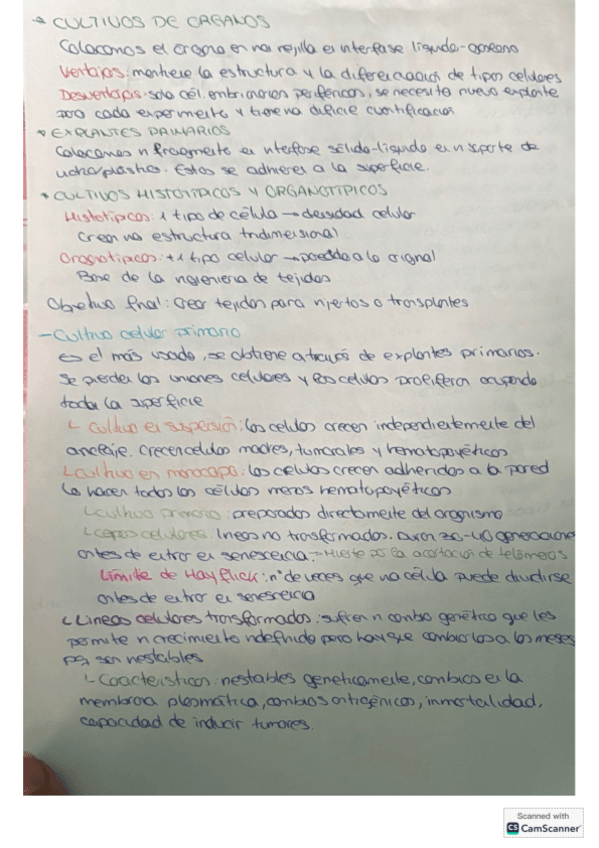 → CULTIVOS DE ORGANOS
Colocamos el organo en una rejilla en interfase líquido-gaseano
Ventajas: mantiene la estructura y la diferenciación de tipos celulares
Desventajas: solo cél. embrionarias periféricas, se necesita nuevo explante
para cada experimento y tiene una dificil cuantificación
EXPLANTES PRIMARIOS
Colocamos un fragmento en interfase sólido-líquido en un soporte de
vidrio/plástico. Estos se adhieren a la superficie.
CULTIVOS HISTOTIPICOS Y ORGANOTIPICOS
Histotipicos: 1 tipo de célula → densidad celular
Crean una estructura tridimensional
Organotipicos: +1 tipo celular → parecido a lo original
Base de la ingeniería de tejidos
Objetivo final: Crear tejidos para injertos o transplantes
- Cultivo celular primario
es el más usado, se obtiene a través de explantes primarios.
Se pierden las uniones celulares y las células proliferan ocupando
toda la superficie
↳ Cultivo en suspensión: las células crecen independientemente del
anclaje. Crecen células madres, tumorales y hematopoyéticos
↳ cultivo en monocapa: las células crecen adheridas a la pared
Lo hacen todas las células menos hematopoyéticas
↳ cultivo primario: preparados directamente del organismo
↳ cepas celulares: líneas no transformadas. Duran 30-40 generaciones
antes de entrar en senescencia → Muerte por la acortación de telómeros
Límite de Hayflick: nº de veces que una célula puede dividirse
antes de entrar en senescencia
↳ Lineas celulares transformadas: sufren un cambio genético que les
permite un crecimiento indefinido pero hay que cambiarlas a los meses
pq son inestables
↳ Características: inestables genéticamente, cambios en la
membrana plasmática, cambios antigénicos, inmortalidad,
capacidad de inducir tumores.
Scanned with
CS CamScanner